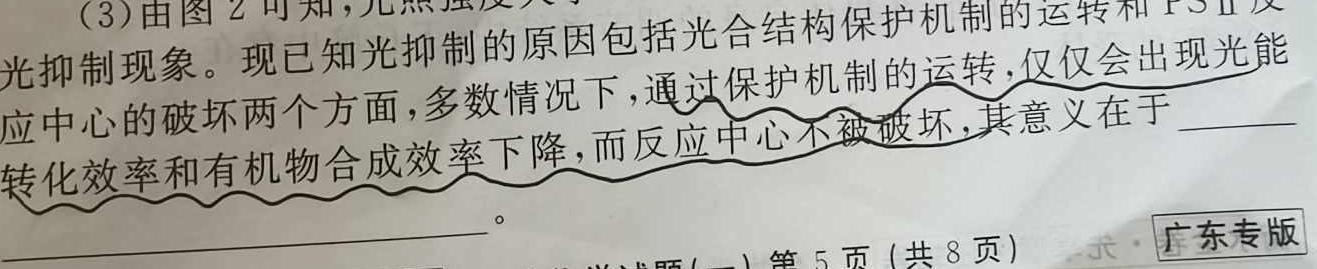 (3)由图 2 可知,光照强度大于
光抑制现象。现已知光抑制的原因包括光合结构保护机制的运转和 PSⅡ反
应中心的破坏两个方面,多数情况下,通过保护机制的运转,仅仅会出现光能
转化效率和有机物合成效率下降,而反应中心不被破坏,其意义在于
。
第 5 页 (共 8 页)
广东专版